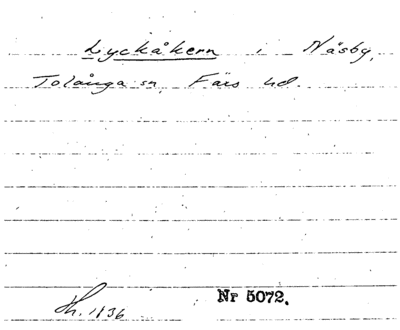 Lyckåkern i Näsby,
Tolånga sn, Färs hd.
Nr 5072.